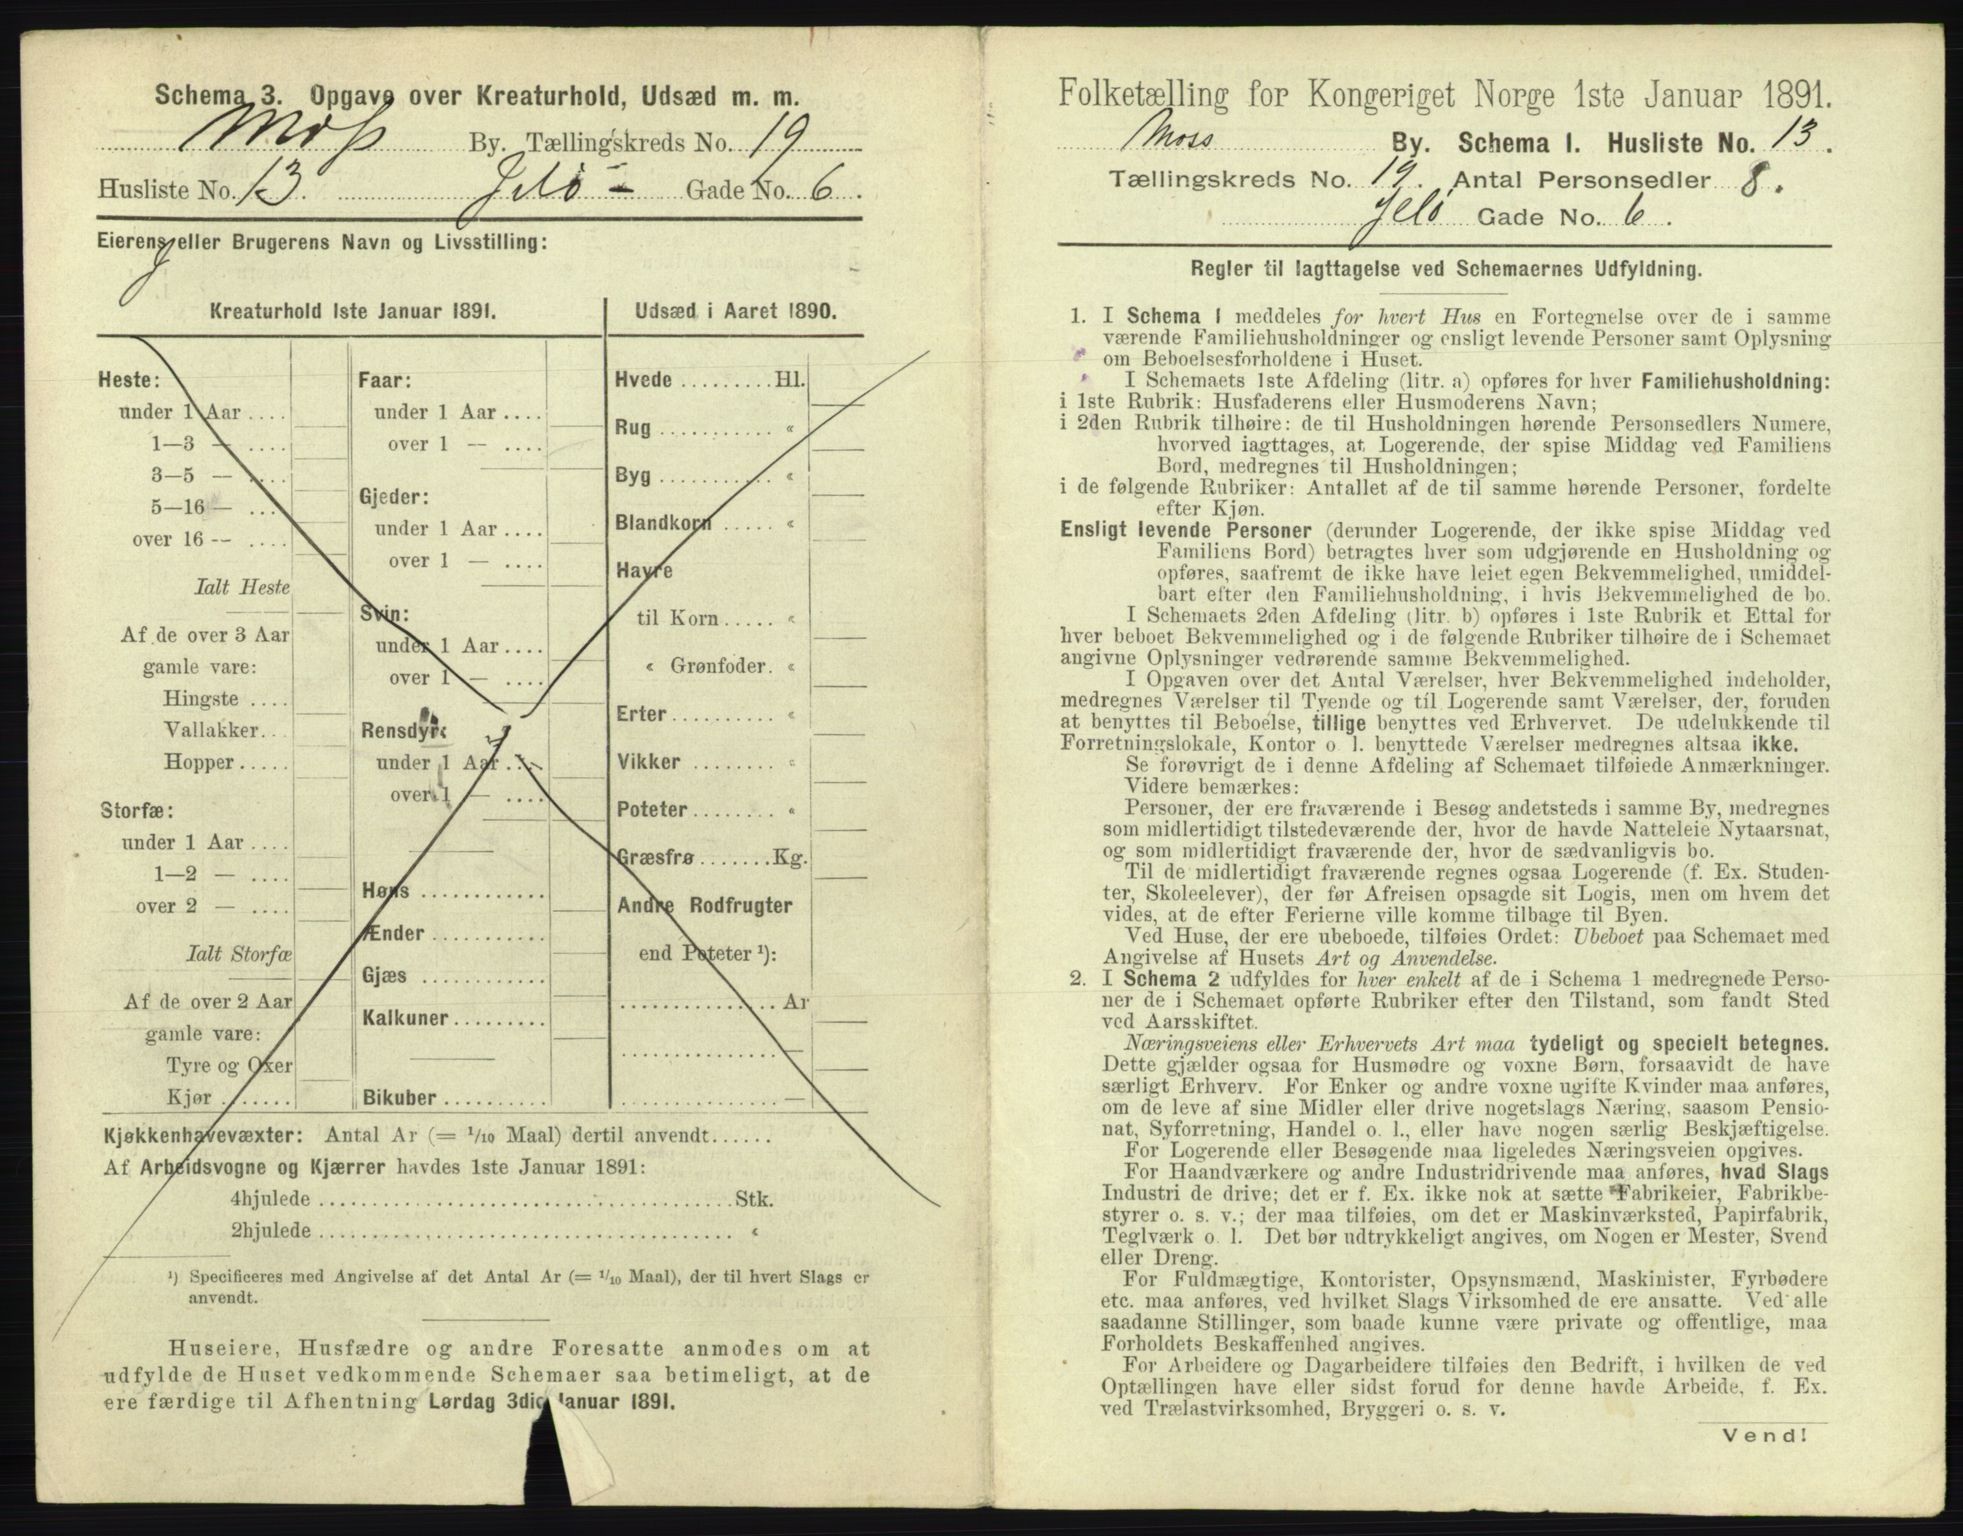 Schema 3. Opgave over Kreaturhold, Udsæd m. m.
Moss By. Tællingskreds No. 19
Husliste No. 13 Jelø - Gade No. 6.
Eierens eller Brugerens Navn og Livsstilling:
Kreaturhold 1ste Januar 1891.
Heste:
under 1 Aar ....
1—3 — ....
3—5 — ....
5—16 — ....
over 16 — ....
Ialt Heste
Af de over 3 Aar
gamle vare:
Hingste ....
Vallakker...
Hopper.....
Storfæ:
under 1 Aar ....
1—2 — ....
over 2 — ....
Ialt Storfæ
Af de over 2 Aar
gamle vare:
Tyre og Oxer
Kjør .......
Faar:
under 1 Aar ....
over 1 — ....
Gjeder:
under 1 Aar ....
over 1 — ....
Svin:
under 1 Aar ....
over 1 — ....
Rensdyr:
under 1 Aar ....
over 1 — ....
Høns ............
Ænder ...........
Gjæs ............
Kalkuner.........
Bikuber ..........
Udsæd i Aaret 1890.
Hvede .........Hl.
Rug ........... «
Byg ........... «
Blandkorn ..... «
Havre
til Korn ..... «
« Grønfoder. «
Erter .......... «
Vikker ........ «
Poteter........ «
Græsfrø .......Kg.
Andre Rodfrugter
end Poteter ¹):
...............Ar
............... —
............... —
Kjøkkenhavevæxter: Antal Ar (= 1/10 Maal) dertil anvendt......
Af Arbeidsvogne og Kjærrer havdes 1ste Januar 1891:
4hjulede ........................................Stk.
2hjulede ........................................ «
¹) Specificeres med Angivelse af det Antal Ar (= 1/10 Maal), der til hvert Slags er
anvendt.
Huseiere, Husfædre og andre Foresatte anmodes om at
udfylde de Huset vedkommende Schemaer saa betimeligt, at de
ere færdige til Afhentning Lørdag 3die Januar 1891.
Folketælling for Kongeriget Norge 1ste Januar 1891.
Moss By. Schema I. Husliste No. 13.
Tællingskreds No. 19. Antal Personsedler 8.
Jelø Gade No. 6.
Regler til Iagttagelse ved Schemaernes Udfyldning.
1. I Schema 1 meddeles for hvert Hus en Fortegnelse over de i samme
værende Familiehusholdninger og ensligt levende Personer samt Oplysning
om Beboelsesforholdene i Huset.
I Schemaets 1ste Afdeling (litr. a) opføres for hver Familiehusholdning:
i 1ste Rubrik: Husfaderens eller Husmoderens Navn;
i 2den Rubrik tilhøire: de til Husholdningen hørende Personsedlers Numere,
hvorved iagttages, at Logerende, der spise Middag ved Familiens
Bord, medregnes til Husholdningen;
i de følgende Rubriker: Antallet af de til samme hørende Personer, fordelte
efter Kjøn.
Ensligt levende Personer (derunder Logerende, der ikke spise Middag ved
Familiens Bord) betragtes hver som udgjørende en Husholdning og
opføres, saafremt de ikke have leiet egen Bekvemmelighed, umiddel-
bart efter den Familiehusholdning, i hvis Bekvemmelighed de bo.
I Schemaets 2den Afdeling (litr. b) opføres i 1ste Rubrik et Ettal for
hver beboet Bekvemmelighed og i de følgende Rubriker tilhøire de i Schemaet
angivne Oplysninger vedrørende samme Bekvemmelighed.
I Opgaven over det Antal Værelser, hver Bekvemmelighed indeholder,
medregnes Værelser til Tyende og til Logerende samt Værelser, der, foruden
at benyttes til Beboelse, tillige benyttes ved Erhvervet. De udelukkende til
Forretningslokale, Kontor o. l. benyttede Værelser medregnes altsaa ikke.
Se forøvrigt de i denne Afdeling af Schemaet tilføiede Anmærkninger.
Videre bemærkes:
Personer, der ere fraværende i Besøg andetsteds i samme By, medregnes
som midlertidigt tilstedeværende der, hvor de havde Natteleie Nytaarsnat,
og som midlertidigt fraværende der, hvor de sædvanligvis bo.
Til de midlertidigt fraværende regnes ogsaa Logerende (f. Ex. Studen-
ter, Skoleelever), der før Afreisen opsagde sit Logis, men om hvem det
vides, at de efter Ferierne ville komme tilbage til Byen.
Ved Huse, der ere ubeboede, tilføies Ordet: Ubeboet paa Schemaet med
Angivelse af Husets Art og Anvendelse.
2. I Schema 2 udfyldes for hver enkelt af de i Schema 1 medregnede Perso-
ner de i Schemaet opførte Rubriker efter den Tilstand, som fandt Sted
ved Aarsskiftet.
Næringsveiens eller Erhvervets Art maa tydeligt og specielt betegnes.
Dette gjælder ogsaa for Husmødre og voxne Børn, forsaavidt de have
særligt Erhverv. For Enker og andre voxne ugifte Kvinder maa anføres,
om de leve af sine Midler eller drive nogetslags Næring, saasom Pensio-
nat, Syforretning, Handel o. l., eller have nogen særlig Beskjæftigelse.
For Logerende eller Besøgende maa ligeledes Næringsveien opgives.
For Haandværkere og andre Industridrivende maa anføres, hvad Slags
Industri de drive; det er f. Ex. ikke nok at sætte Fabrikeier, Fabrikbe-
styrer o. s. v.; der maa tilføies, om det er Maskinværksted, Papirfabrik,
Teglværk o. l. Det bør udtrykkeligt angives, om Nogen er Mester, Svend
eller Dreng.
For Fuldmægtige, Kontorister, Opsynsmænd, Maskinister, Fyrbødere
etc. maa anføres, ved hvilket Slags Virksomhed de ere ansatte. Ved alle
saadanne Stillinger, som baade kunne være private og offentlige, maa
Forholdets Beskaffenhed angives.
For Arbeidere og Dagarbeidere tilføies den Bedrift, i hvilken de ved
Optællingen have eller sidst forud for denne havde Arbeide, f. Ex.
ved Trælastvirksomhed, Bryggeri o. s. v.
Vend!